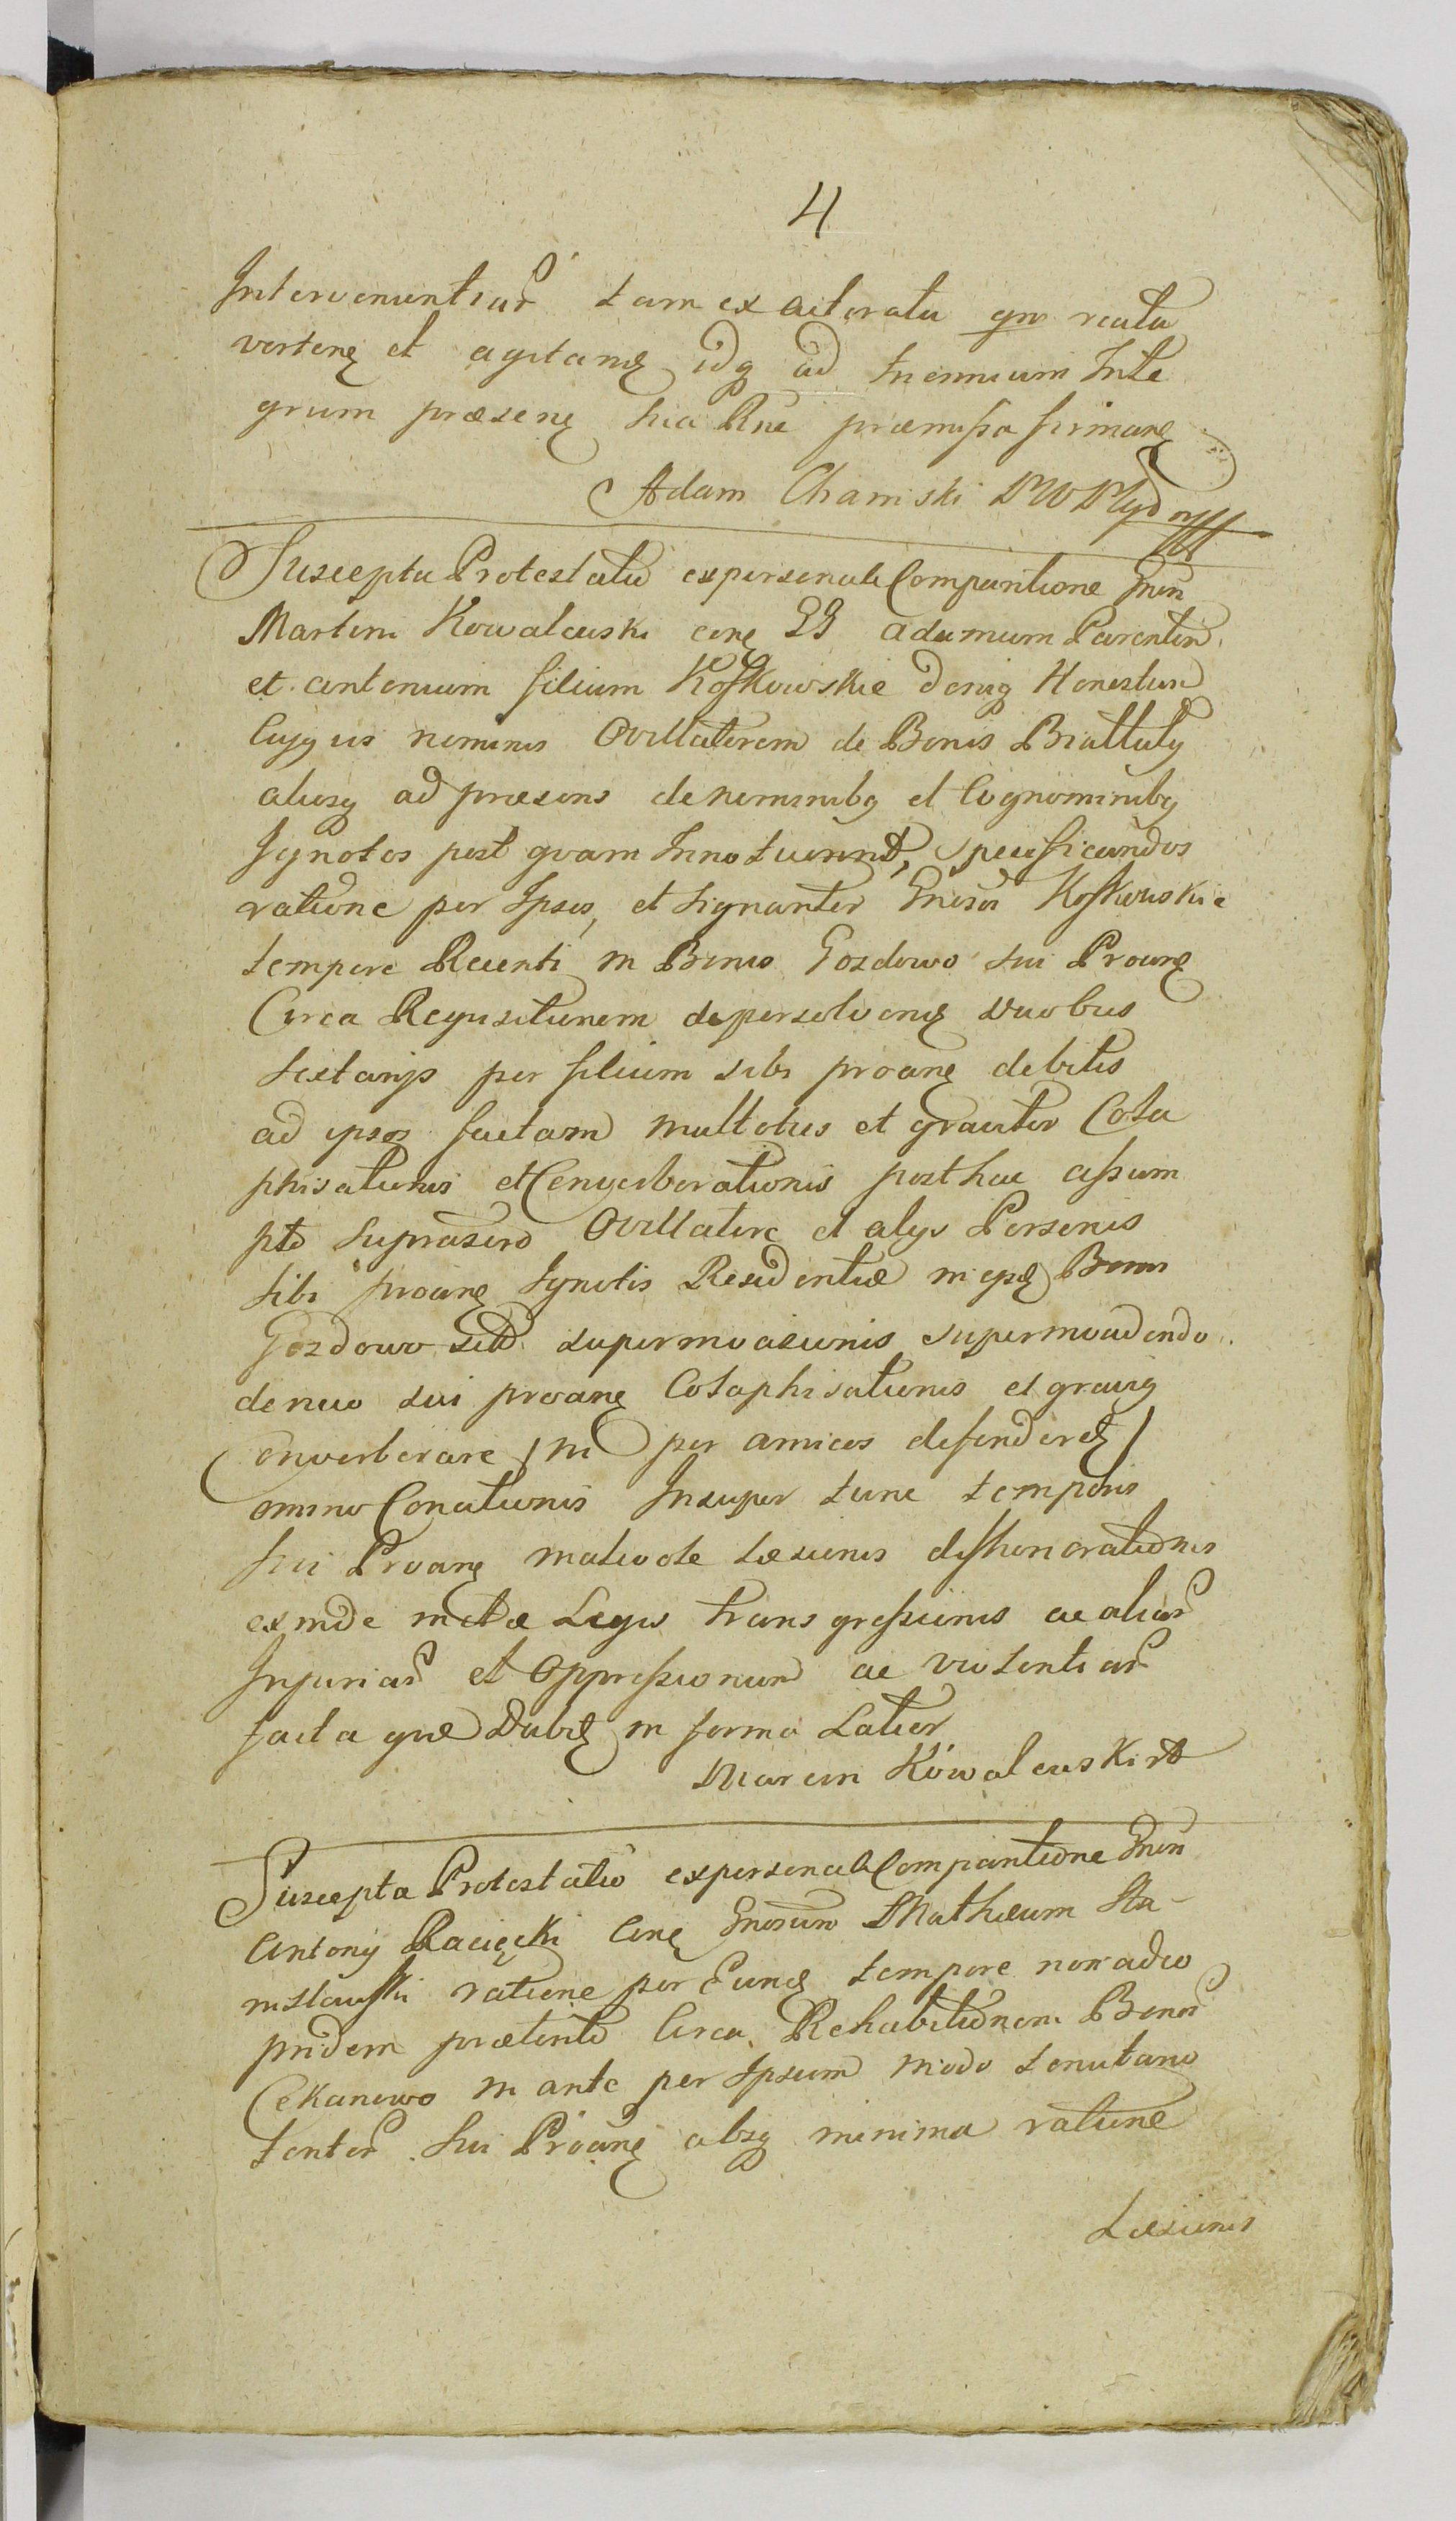 4
Intervenientiar tam ex actoratu qm reatu
verten et agitan idq ad triennium Inte
grum praesen hia Rne praemissa firman
Adam Chamski
Suscepta Protestatio ex personali Comparitione Gnsi
Martini Kowalewski con GG Adamum Parentem
et Antonium filium Koskowskie deniq Honestum
Cujus nominis Ovillatorem de Bonis Biattuty
aliosq ad praesens de nominibq et Cognominibq
Ignotos post quam Innotuerint, specificandos
ratione per Ipsos, et signanter Gnoso Koskowskie
tempore Recenti in Bonis Gozdowo sui Proan
Circa Requisitionem de persolven duobus
sextarijs per filium sibi proan debitis
ad ipsos factam multotus et graviter Cola
phisationis et Converberationis post hac assum
pto suprascro Ovillatore et alys Personis
sibi proan Ignotis Residentiae in eps Bonis
Gozdowo supermvasionis supermvadendo
denuo sui proan Colaphisationis et graviq
Converberare / ni per amicos defenderet /
omnio Conationis Insuper tunc temporis
sui Proan malivole Laesionis disshonorationis
ex inde Legis transgressionis ac aliar
Injuriar et Oppressionum ac violentiar
facta quae Dubit in forma Latior
Marcin Kowalewski
Suscepta Protestatio ex personali Comparitione Gnsi
Antony Racięcki Con Gnosum Mathaeum Sta-
nisławski ratione per Eund tempore non adeo
pridem praeterito Circa Rehabitionem Bonor
Cekanowo in ante per Ipsum modo tenutario
tentor sui Proan absq minima ratione
Laesionis